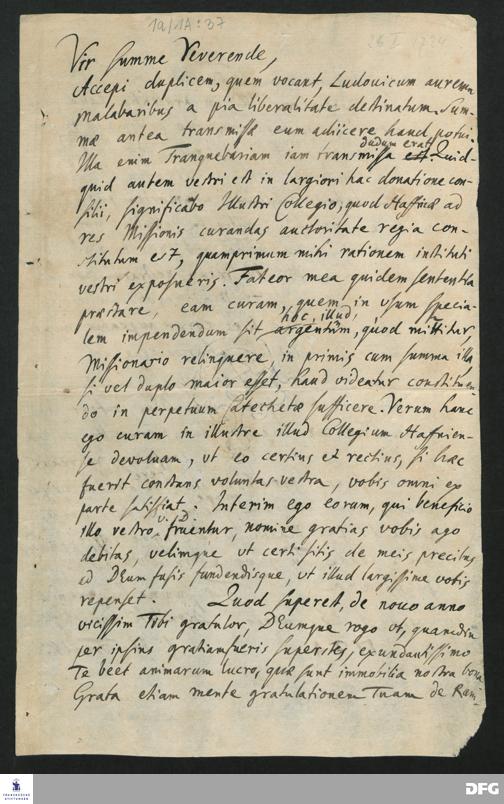 1a/1A:37
26 I 1734
Vir summe Reverende,
Accepi duplicem, quem vocant, Ludovicum aureum
Malabaribus a pia liberalitate destinatum. Sum-
mæ antea transmissæ eum adiicere haud potui.
Illa enim Tranquebariam iam transmissa dudum erat. Quid-
quid autem vestri est in largiori hac donatione con-
silii, significabo Illustri Collegio, quod Hafniæ ad
res Missionis curandas auctoritate regia con-
stitutum est, quamprimum mihi rationem instituti
vestri exposueris. Fateor mea quidem sententia
præstare, eam curam, quem in usum specia-
lem impendendum sit hoc, illud, argentum, quod mittitur,
Missionario relinquere, in primis cum summa illa
si vel duplo maior esset, haud videatur constituen-
do in perpetuum Catechetæ sufficere. Verum hanc
ego curam in illustre illud Collegium Hafnien-
se devoluam, ut eo certius et rectius, si hæc
fuerit constans voluntas vestra, vobis omni ex
parte satisfiat. Interim ego eorum, qui beneficio
illo vestro fruentur, nomine gratias vobis ago
debitas, velimque ut certi sitis de meis precibus
ad DEum fusis fundendisque, ut illud largissime vobis
repenset. Quod superest, de novo anno
vicissim Tibi gratulor, DEumque rogo ut, quamdiu
per ipsius gratiam fueris superstes, exundantissimo
Te beet animarum lucro, quæ sunt immobilia nostra bona
Grata etiam mente gratulationem Tuam de
FRANCKESCHE STIFTUNGEN
DFG